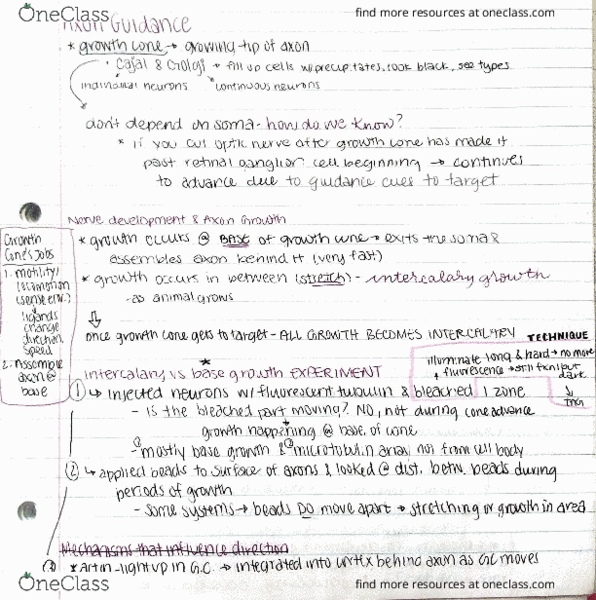 OneClass
find more resources at oneclass.com
Axon Guidance
* growth cone → growing tip of axon
· Cajal & Golgi → fill up cells w/precipitates, look black, see types
individual neurons
continuous neurons
don't depend on soma - how do we know?
* if you cut optic nerve after growth cone has made it
past retinal ganglion cell beginning → continues
to advance due to guidance cues to target
Nerve development & Axon Growth
* growth occurs @ BASE of growth cone → exits the soma &
assembles axon behind it (very fast)
* growth occurs in between (stretch) - intercalary growth
- as animal grows
once growth cone gets to target - ALL GROWTH BECOMES INTERCALARY
Growth
Cone's Jobs
1. motility/
(sense env.)
ligands
change
direction
speed
2. Assemble
axon @
base
TECHNIQUE
illuminate long & hard → no more
fluorescence → still fxn but
dark
intercalary vs base growth EXPERIMENT
1 ↳ injected neurons w/ fluorescent tubulin & bleached 1 zone
- is the bleached part moving? NO, not during cone advance
growth happening @ base of cone
- mostly base growth & microtubulin array not from cell body
2 ↳ applied beads to surface of axons & looked @ dist. betw. beads during
periods of growth
- some systems → beads DO move apart → stretching or growth in area
Mechanisms that influence direction
* Actin - light up in G.C. → integrated into cortex behind axon as GC moves
OneClass
find more resources at oneclass.com